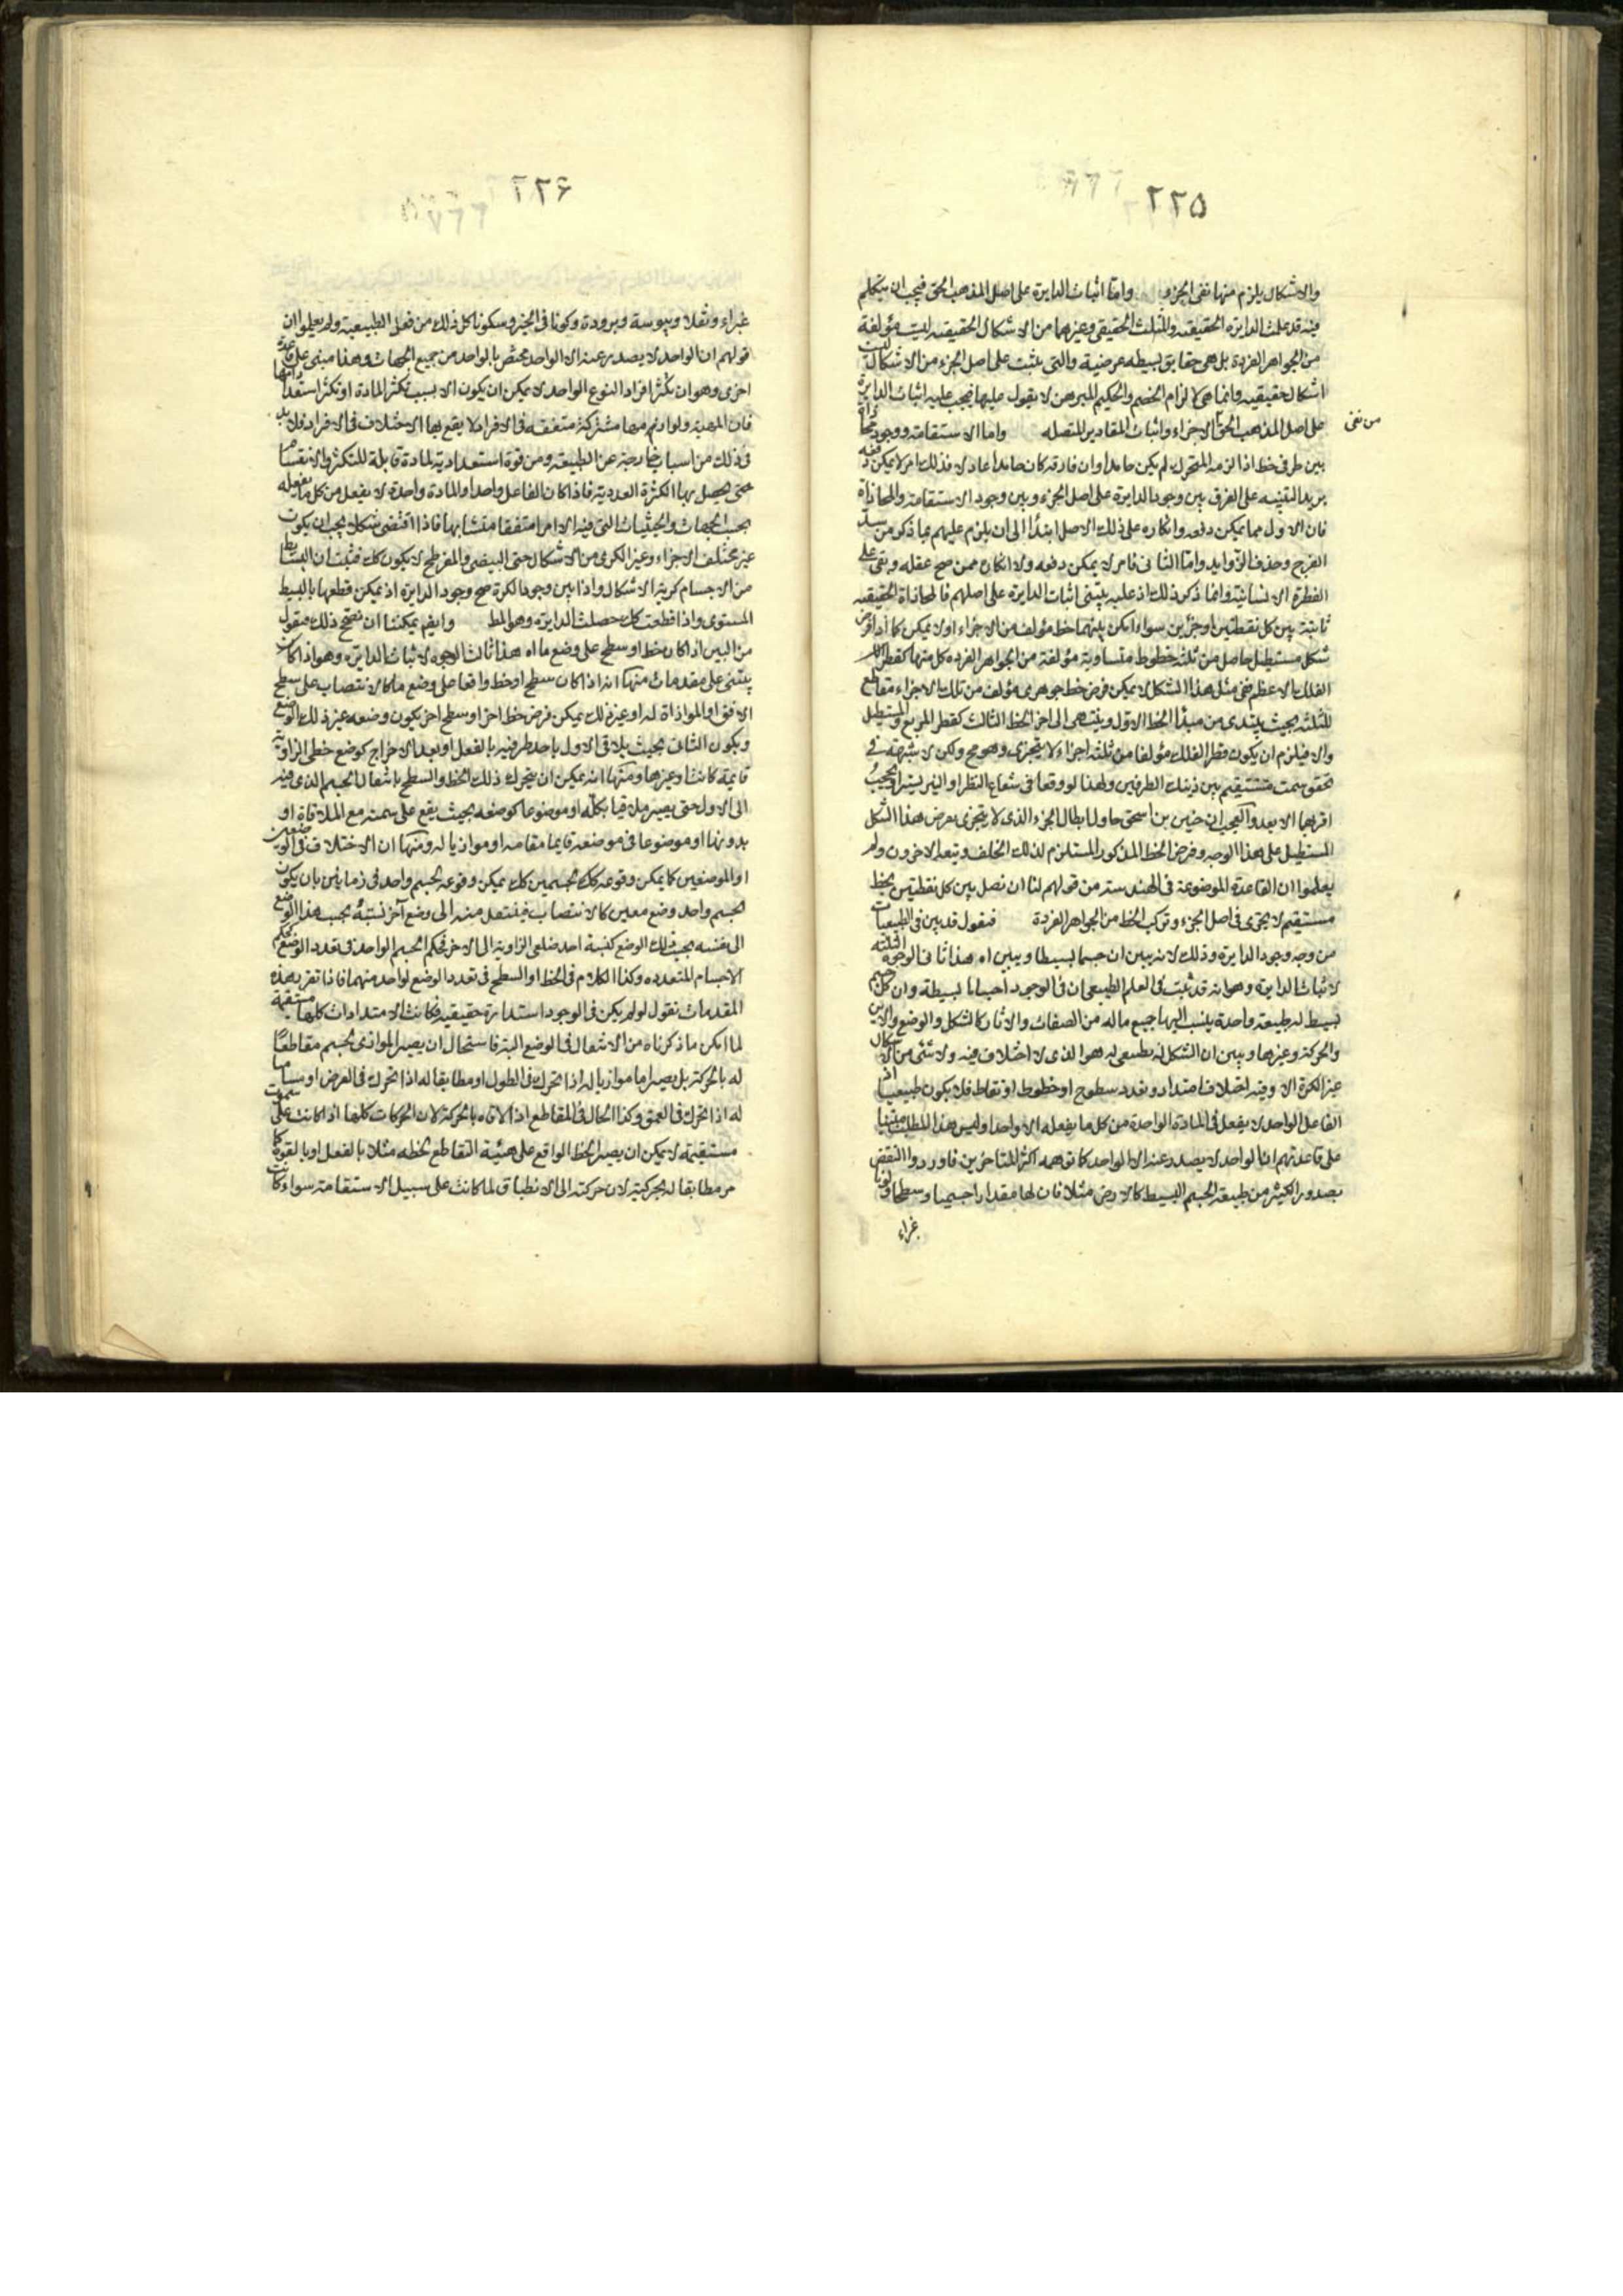 ٢٢٥
والاشكال يلزم منها نفى الجزء واما اثبات الدايرة على اصل المذهب الحق فيجب ان يتكلم
فيه قد علمت الدايرة الحقيقيه والمثلث الحقيقى وغيرهما من الاشكال الحقيقيه ليست مؤلفة
من الجواهر الفردة بل هى حقايق بسيطه عرضية والتى يثبت على اصل الجزء من الاشكال ليست
اشكال حقيقيه وانما هى لالزام الخصم والحكيم المبرهن لا يقول عليها فيجب عليه اثبات الدايرة
على اصل المذهب الحق الاجزاء واثبات المقادير المتصله واما الاستقامة ووجود محاذاة
من نفى
بين طرفى خط اذا لزمه المتحرك لم يكن حايدا وان فارقه كان حايدا عادلا فذلك امر لا يمكن دفعه
يريد التنبيه على الفرق بين وجود الدايرة على اصل الجزء وبين وجود الاستقامة والمحاذاة
فان الاول مما يمكن دفعه وانكاره على ذلك الاصل ابتدأ الى ان يلزم عليهم بما ذكر من
الفرج وحذف الزوايد واما الثانى فامر لا يمكن دفعه ولا انكان ممن صح عقله وبقى على
الفطرة الانسانية وانما ذكر ذلك اذ عليه يبتنى اثبات الدايرة على اصلهم فالمحاذاة الحقيقيه
ثابتة بين كل نقطتين او جزئين سواء امكن بينهما خط مؤلف من الاجزاء او لا يمكن كما اذا فرض
شكل مستطيل حاصل من ثلثه خطوط متساوية مؤلفة من الجواهر الفرده كل منها كقطر
الفلك الاعظم ففى مثل هذا الشكل لا يمكن فرض خط جوهرى مؤلف من تلك الاجزاء مقاطع
للثلثه بحيث يبتدى من مبدأ الخط الاول وينتهى الى اخر الخط الثالث كقطر المربع والمستطيل
والا فيلزم ان يكون قطر الفلك مؤلفا من ثلثه اجزاء لا يتجزى وهو مح ولكن لا شبهة فى
تحقق سمت مستقيم بين ذينك الطرفين ولهذا لو وقعا فى شعاع النظر او النير يستر ويحجب
اقربهما الابعد والعجب ان حنين بن اسحق حاول ابطال الجزء الذى لا يتجزى بعرض هذا الشكل
المستطيل على هذا الوجه وفرض الخط المذكور المستلزم لذلك الخلف وتبعه الاخرون ولم
يعلموا ان القاعدة الموضوعة فى الهندسة من قولهم لنا ان نصل بين كل نقطتين بخط
مستقيم لا يجرى فى اصل الجزء وتركب الخط من الجواهر الفردة فنقول قد بين فى الطبيعيات
من وجه وجود الدايرة وذلك لانه يبين ان جسما بسيطا ويبين اه هذا ثانى الوجوه
لاثبات الدايرة وهو انه قد ثبت فى العلم الطبيعى ان فى الوجود اجساما بسيطة وان كل جسم
بسيط له طبيعة واحدة ينسب اليها جميع ماله من الصفات والاثار كالشكل والوضع والاين
والحركة وغيرها ويبين ان الشكل له طبيعى له هو الذى لا اختلاف فيه ولا شئ من الاشكال
غير الكرة الا وفيه اختلاف امتداد وتعدد سطوح او خطوط او نقاط فلا يكون طبيعيا اذ
الفاعل الواحد لا يفعل فى المادة الواحدة من كل ما يفعله الا واحدا وليس هذا المطلب مبتنيا
على قاعدتهم ان الواحد لا يصدر عنه الا الواحد كما توهمه اكثر المتاخرين فاوردوا النقض
بصدور الكثير من طبيعة الجسم البسيط كالارض مثلا فان لها مقدارا جسميا وسطحا ولونا
غبراء
٢٢٦
غبراء وثقلا ويبوسة وبرودة وكونا فى الحيز وسكونا كل ذلك من فعل الطبيعية ولم يعلموا ان
قولهم ان الواحد لا يصدر عنه الا الواحد مختص بالواحد من جميع الجهات وهذا مبنى على قاعدة
اخرى وهو ان تكثر افراد النوع الواحد لا يمكن ان يكون الا بسبب تكثر المادة او تكثر استعداداتها
فان المهية ولوازمها مشتركة متفقه فى الافراد لا يقع بها الاختلاف فى الافراد فلا بد
فى ذلك من اسباب خارجة عن الطبيعة ومن قوة استعدادية لمادة قابلة للتكثر والانقسام
حتى يحصل بها الكثرة العددية فاذا كان الفاعل واحدا والمادة واحدة لا يفعل من كل ما يفعله
بحسب الجهات والحيثيات التى فيه الا امرا متفقا متشابها فاذا اقتضى شكلا يجب ان يكون
غير مختلف الاجزاء وغير الكرى من الاشكال حتى البيضى والمفرطح لا يكون كك فثبت ان البسايط
من الاجسام كرية الاشكال واذا بين وجود الكرة صح وجود الدايرة اذ يمكن قطعها بالبسيط
المستوى واذا قطعت كك حصلت الدايرة وهو المط وايضم يمكننا ان نصحح ذلك فنقول
من البين اذا كان خط او سطح على وضع ما اه هذا ثالث الوجوه لاثبات الدايرة وهو اذ كان
يبتنى على مقدمات منها انه اذا كان سطح او خط واقعا على وضع ما كالانتصاب على سطح
الافق او الموازاة له او غير ذلك يمكن فرض خط اخر او سطح اخر يكون وضعه غير ذلك الوضع
ويكون الثانى بحيث يلاقى الاول باحد طرفيه بالفعل او بعد الاخراج كوضع خطى الزاوية
قايمة كانت او غيرها ومنها انه يمكن ان يتحرك ذلك الخط والسطح بانتقال الجسم الذى فيه
الى الاول حتى يصير ملاقيا بكله او موضوعا كوضعه بحيث يقع على سمته مع الملاقاة او
بدونها او موضوعا فى موضعه قايما مقامه او موازيا له ومنها ان الاختلاف فى الوضعين
او الموضعين كما يمكن وقوعه كك لجسمين كك يمكن وقوعه لجسم واحد فى زمانين بان يكون
لجسم واحد وضع معين كالانتصاب فينتقل منه الى وضع آخر نسبته بحسب هذا الوضع
الى نفسه بحسب ذلك الوضع كنسبة احد ضلعى الزاوية الى الاخر فحكم الجسم الواحد فى تعدد الوضع كحكم
الاجسام المتعدده وكذا الكلام فى الخط او السطح فى تعدد الوضع لواحد منهما فاذا تقرر هذه
المقدمات نقول لو لم يكن فى الوجود استدارة حقيقيه فكانت الامتدادات كلها مستقيمة
لما امكن ما ذكرناه من الانتقال فى الوضع البته فاستحال ان يصير الموازى لجسم مقاطعا
له بالحركة بل يصير اما موازيا له اذا تحرك فى الطول او مطابقا له اذا تحرك فى العرض او مسامتا
له اذا تحرك فى العمق وكذا الحال فى المقاطع اذا لاقاه بالحركة لان الحركات كلها اذا كانت على سموت
مستقيمة لا يمكن ان يصير الخط الواقع على هيئية التقاطع لخطه مثلا بالفعل او بالقوة كما
مر مطابقا له بحركيته لان حركته الى الانطباق لما كانت على سبيل الاستقامة سواء كانت